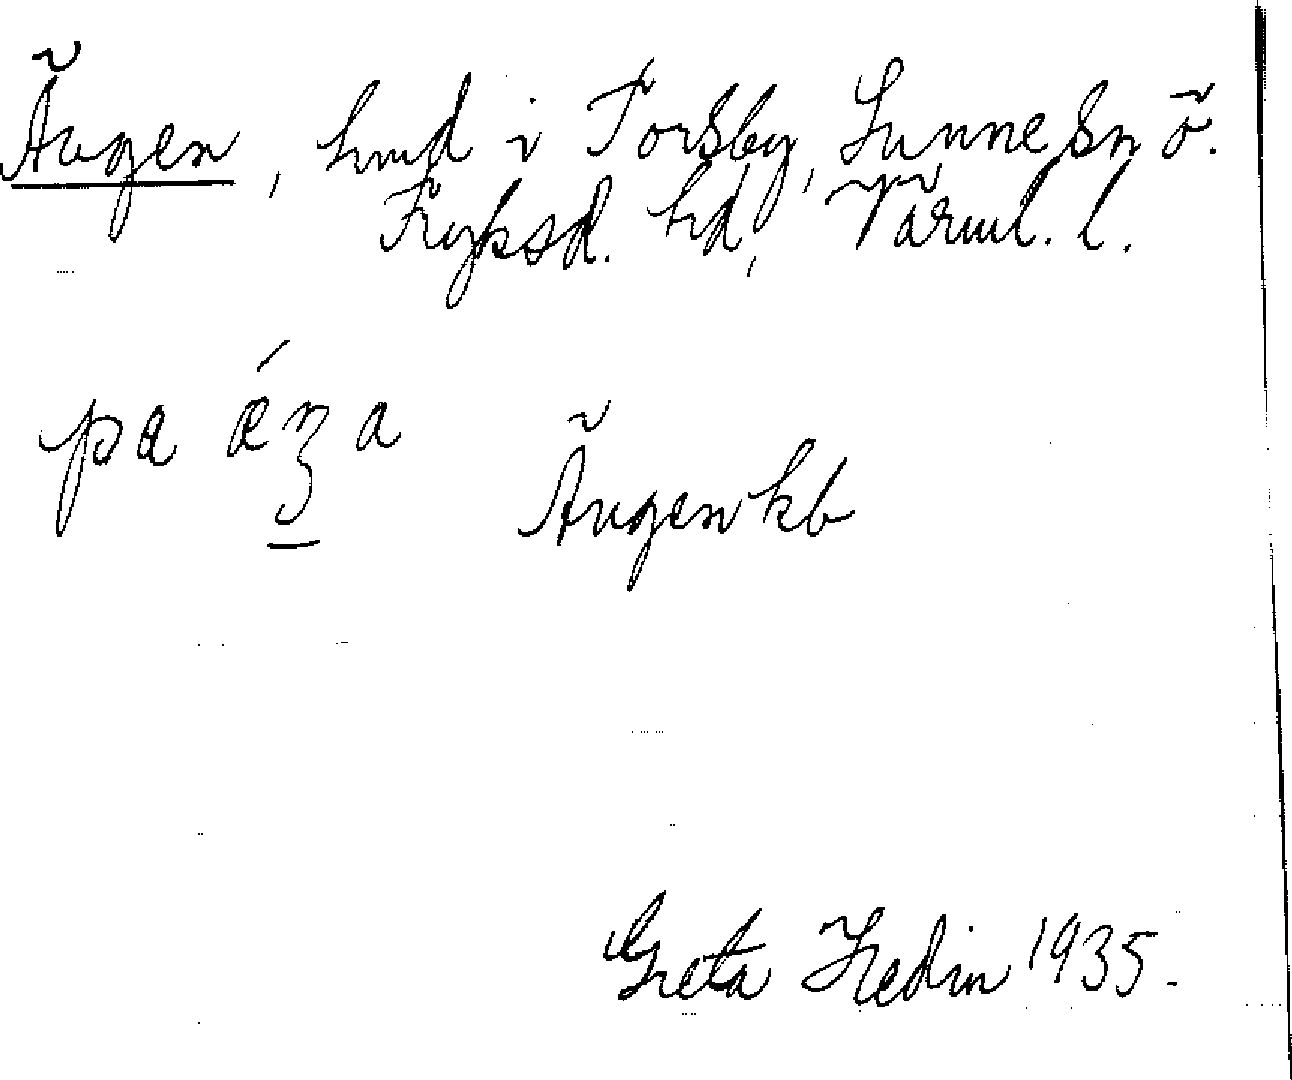 Ängen, hmd i Torsby, Sunne sn ö.
Fryksd. hd, Värml. l.
pa
Ängen kb
Greta Hedin 1935.